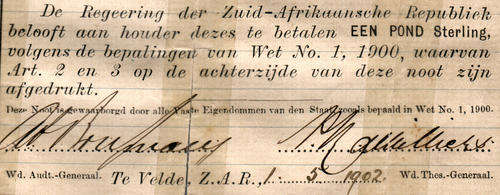 De Regeering der Zuid-Afrikaansche Republiek
belooft aan houder dezes te betalen EEN POND Sterling,
volgens de bepalingen van Wet No. 1, 1900, waarvan
Art. 2 en 3 op de achterzijde van deze noot zijn
afgedrukt.
Deze Noot is gewaarborgd door alle Vaste Eigendommen van den Staat zooals bepaald in Wet No. 1, 1900.
Wd. Audt.-Generaal. Te Velde, Z.A.R., 1 5 1902 Wd. Thes.-Generaal.